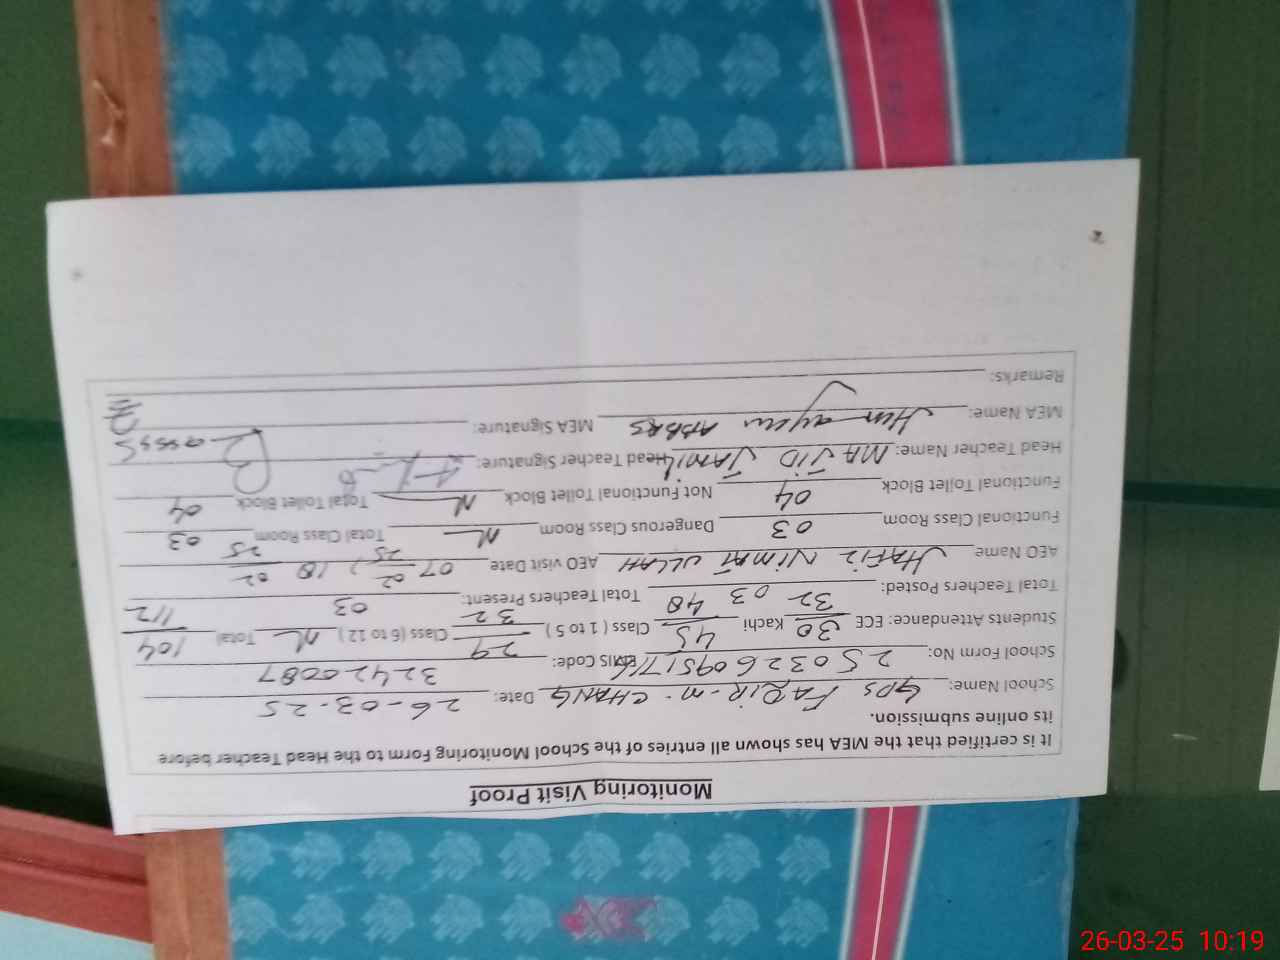 Monitoring Visit Proof
It is certified that the MEA has shown all entries of the School Monitoring Form to the Head Teacher before
its online submission.
School Name: GPS FAQIR-M-CHANG Date: 26-03-25
School Form No: 250326095176 EMIS Code: 32420087
Students Attendance: ECE 30/32 Kachi 45/48 Class ( 1 to 5 ) 29/32 Class (6 to 12 ) N Total 104/112
Total Teachers Posted: 03 Total Teachers Present: 03
AEO Name HAFIZ NIMAT ULLAH AEO visit Date 07/02/25, 18/02/25
Functional Class Room 03 Dangerous Class Room N Total Class Room 03
Functional Toilet Block 04 Not Functional Toilet Block N Total Toilet Block 04
Head Teacher Name: MAJID JAMIL Head Teacher Signature:
MEA Name: Humayun ABBAS MEA Signature:
Remarks:
26-03-25 10:19